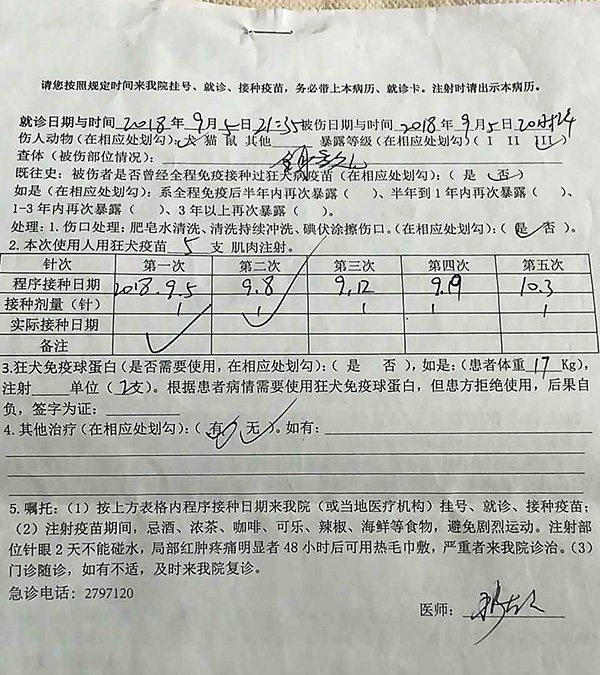 请您按照规定时间来我院挂号、就诊、接种疫苗，务必带上本病历、就诊卡。注射时请出示本病历。
就诊日期与时间 2018 年 9 月 5 日 21:35 被伤日期与时间 2018 年 9 月 5 日 20时
伤人动物(在相应处划勾):犬 猫 鼠 其他 暴露等级(在相应处划勾)( I II III )
查体（被伤部位情况）:
既往史：被伤者是否曾经全程免疫接种过狂犬病疫苗(在相应处划勾):( 是 否 )
如是(在相应处划勾)：系全程免疫后半年内再次暴露（ ）、半年到 1 年内再次暴露（ ）、
1-3 年内再次暴露（ ）、3 年以上再次暴露（ ）。
处理：1. 伤口处理：肥皂水清洗、清洗持续冲洗、碘伏涂擦伤口。(在相应处划勾):( 是 否 )。
2. 本次使用人用狂犬疫苗 5 支 肌肉注射。
针次 第一次 第二次 第三次 第四次 第五次
程序接种日期 2018.9.5 9.8 9.12 9.19 10.3
接种剂量（针） 1 1 1 1 1
实际接种日期
备注
3.狂犬免疫球蛋白(是否需要使用，在相应处划勾):( 是 否 )，如是:(患者体重 17 Kg)，
注射 单位( 2支)。根据患者病情需要使用狂犬免疫球蛋白，但患方拒绝使用，后果自
负，签字为证：
4. 其他治疗(在相应处划勾):( 有 无 )。如有：
5. 嘱托：（1）按上方表格内程序接种日期来我院（或当地医疗机构）挂号、就诊、接种疫苗；
（2）注射疫苗期间，忌酒、浓茶、咖啡、可乐、辣椒、海鲜等食物，避免剧烈运动。注射部
位针眼 2 天不能碰水，局部红肿疼痛明显者 48 小时后可用热毛巾敷，严重者来我院诊治。（3）
门诊随诊，如有不适，及时来我院复诊。
急诊电话：2797120
医师：